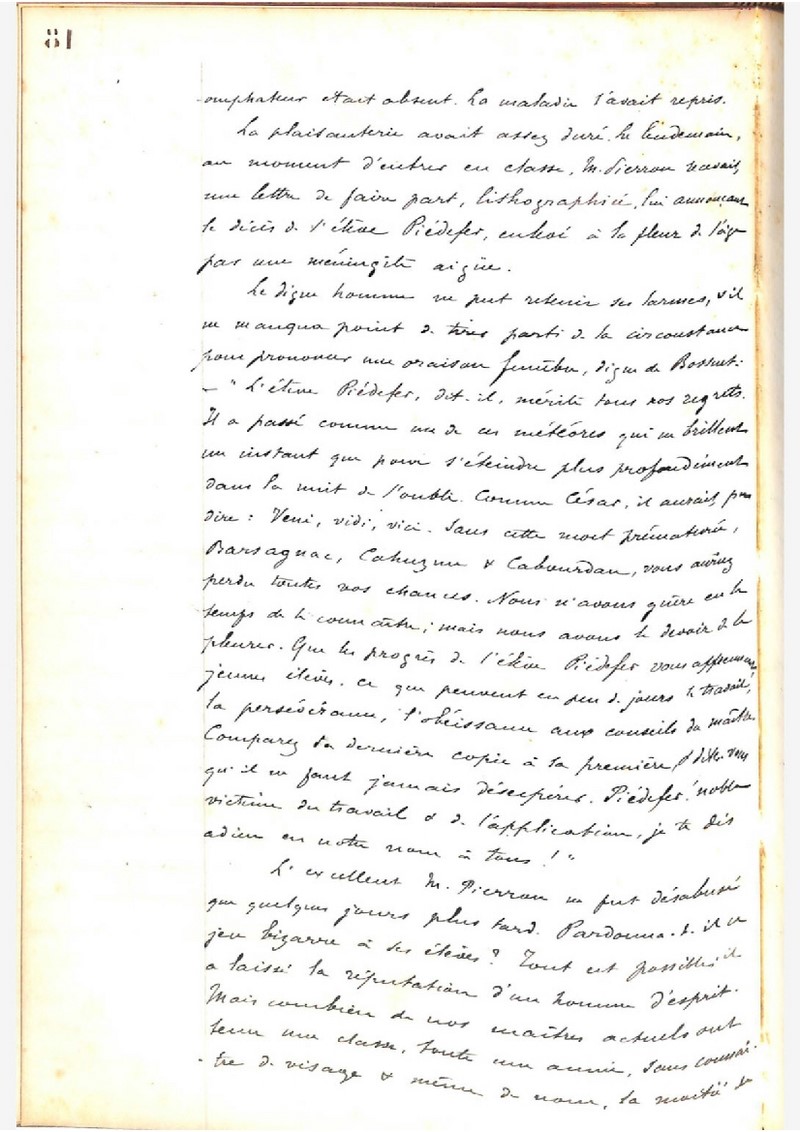 81
omphateur était absent. La maladie l'avait repris.
La plaisanterie avait assez duré. Le lendemain,
au moment d'entrer en classe, M. Pierron recevait
une lettre de faire part, lithographiée, lui annonçant
le décès de l'élève Piédefer, enlevé à la fleur de l'âge
par une méningite aigüe.
Le digne homme ne put retenir ses larmes, & il
ne manqua point de tirer parti de la circonstance
pour prononcer une oraison funèbre, digne de Bossuet:
— " L'élève Piédefer, dit-il, mérite tous nos regrets.
Il a passé comme un de ces météores qui ne brillent
un instant que pour s'éteindre plus profondément
dans la nuit de l'oubli. Comme César, il aurait pu
dire : Veni, vidi, vici. Sans cette mort prématurée,
Barsagnac, Cahuzac & Cabourdan, vous auriez
perdu toutes vos chances. Nous n'avons guère eu le
temps de le connaître ; mais nous avons le devoir de le
pleurer. Que les progrès de l'élève Piédefer vous apprennent,
jeunes élèves, ce que peuvent en peu de jours le travail,
la persévérance, l'obéissance aux conseils du maître.
Comparez sa dernière copie à la première, & dites-vous
qu'il ne faut jamais désespérer. Piédefer! noble
victime du travail & de l'application, je te dis
adieu en notre nom à tous ! "
L'excellent M. Pierron ne fut désabusé
que quelques jours plus tard. Pardonna-t-il ce
jeu bizarre à ses élèves? Tout est possible; il
a laissé la réputation d'un homme d'esprit.
Mais combien de nos maîtres actuels ont
tenu une classe, toute une année, sans connaî-
-tre de visage & même de nom, la moitié de